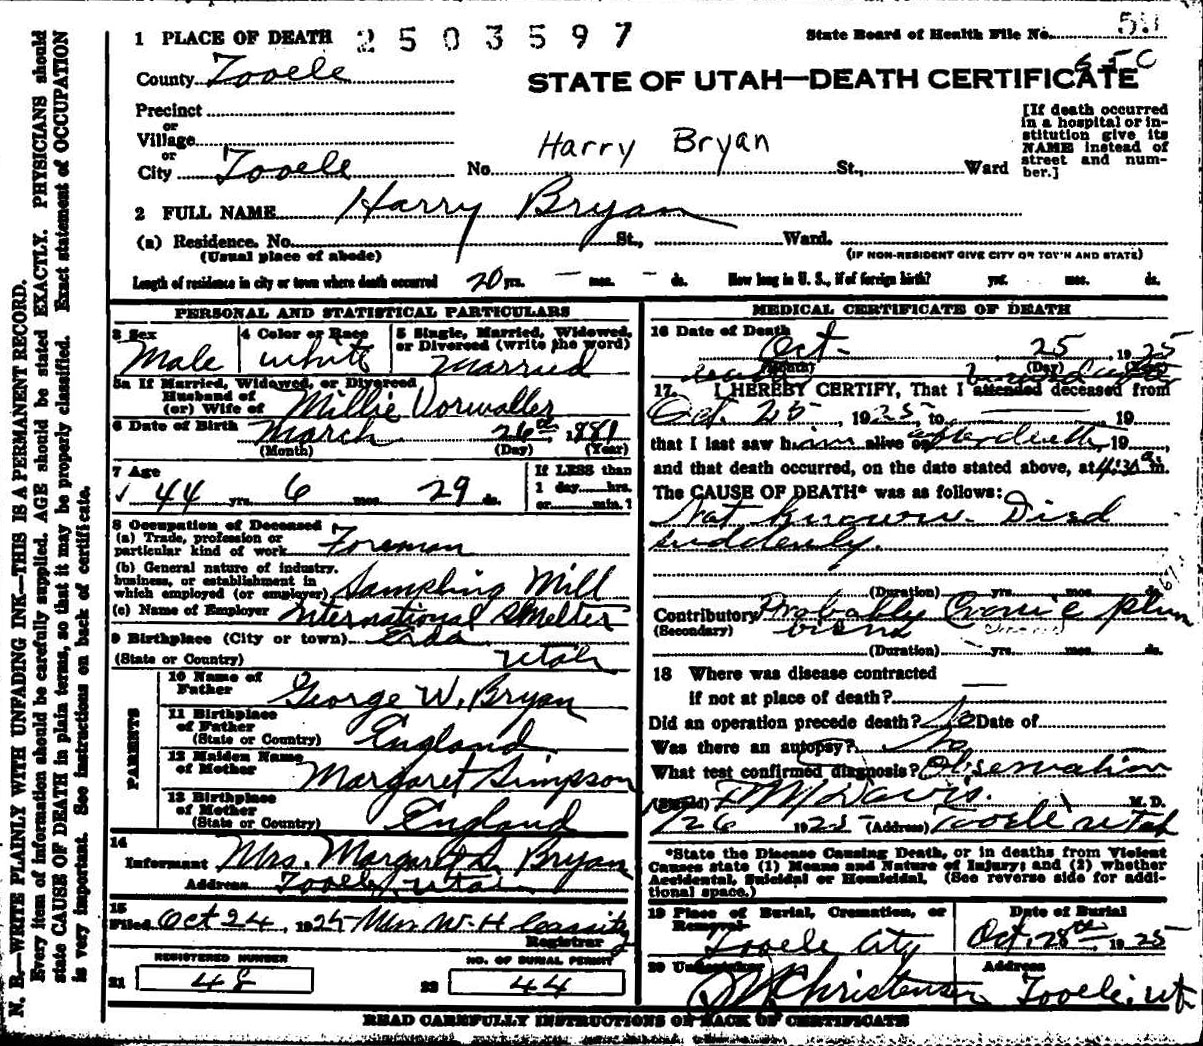 1 PLACE OF DEATH 2503597 State Board of Health File No. 50
County Tooele STATE OF UTAH—DEATH CERTIFICATE
Precinct
or
Village
or
City Tooele No. Harry Bryan St., Ward
[If death occurred
in a hospital or in-
stitution give its
NAME instead of
street and num-
ber.]
2 FULL NAME Harry Bryan
(a) Residence. No. St., Ward.
(Usual place of abode) (IF NON-RESIDENT GIVE CITY OR TOWN AND STATE)
Length of residence in city or town where death occurred 20 yrs. — mos. — ds. How long in U. S., if of foreign birth? yrs. mos. ds.
PERSONAL AND STATISTICAL PARTICULARS
3 Sex 4 Color or Race 5 Single, Married, Widowed,
or Divorced (write the word)
Male white Married
5a If Married, Widowed, or Divorced
Husband of
(or) Wife of Millie Vorwaller
6 Date of Birth March 26th, 1881
(Month) (Day) (Year)
7 Age If LESS than
44 yrs. 6 mos. 29 ds. 1 day hrs.
or min.?
8 Occupation of Deceased
(a) Trade, profession or
particular kind of work Foreman
(b) General nature of industry,
business, or establishment in
which employed (or employer) Sampling Mill
(c) Name of Employer International Smelter
9 Birthplace (City or town) Erda
(State or Country) Utah
PARENTS
10 Name of
Father George W. Bryan
11 Birthplace
of Father
(State or Country) England
12 Maiden Name
of Mother Margaret Simpson
13 Birthplace
of Mother
(State or Country) England
14
Informant Mrs. Margaret S. Bryan
Address Tooele, Utah
15
Filed Oct 24 1925 Mrs W. H.
Registrar
REGISTERED NUMBER NO. OF BURIAL PERMIT
21 48 22 44
MEDICAL CERTIFICATE OF DEATH
16 Date of Death
Oct. 25 1925
(Month) (Day) (Year)
17. I HEREBY CERTIFY, That I attended deceased from
Oct. 25 1925 to 19
that I last saw him alive on after death, 19
and that death occurred, on the date stated above, at m.
The CAUSE OF DEATH* was as follows:
Not Known. Died
suddenly.
(Duration) yrs. mos. ds.
Contributory Probably
(Secondary)
(Duration) yrs. mos. ds.
18 Where was disease contracted
if not at place of death?
Did an operation precede death? No Date of
Was there an autopsy? No
What test confirmed diagnosis? Observation
(Signed) Davis. M. D.
/26 1925 (Address) Tooele Utah
*State the Disease Causing Death, or in deaths from Violent
Causes state (1) Means and Nature of Injury; and (2) whether
Accidental, Suicidal or Homicidal. (See reverse side for addi-
tional space.)
19 Place of Burial, Cremation, or Date of Burial
Removal
Tooele City Oct. 28th 1925
20 Undertaker Address
Christensen Tooele, Ut
READ CAREFULLY INSTRUCTIONS ON BACK OF CERTIFICATE
N. B.—WRITE PLAINLY WITH UNFADING INK—THIS IS A PERMANENT RECORD.
Every item of information should be carefully supplied. AGE should be stated EXACTLY. PHYSICIANS should
state CAUSE OF DEATH in plain terms, so that it may be properly classified. Exact statement of OCCUPATION
is very important. See instructions on back of certificate.